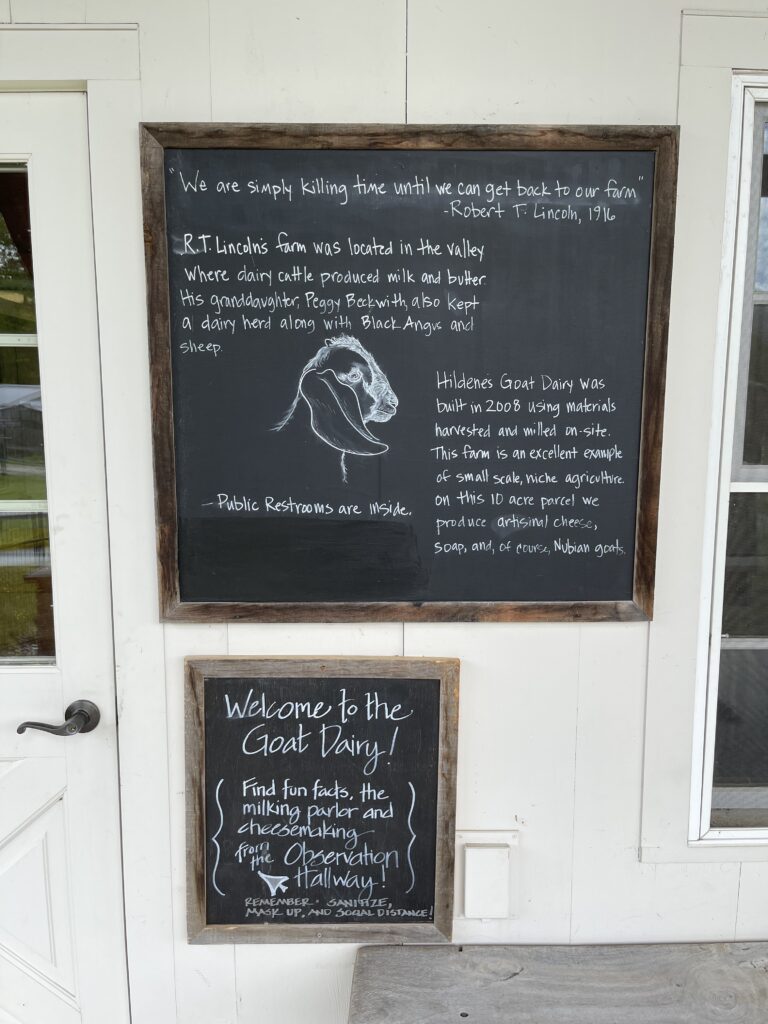 "We are simply killing time until we can get back to our farm"
-Robert T. Lincoln, 1916
R.T. Lincoln's farm was located in the valley
where dairy cattle produced milk and butter.
His granddaughter, Peggy Beckwith, also kept
a dairy herd along with Black Angus and
sheep.
Hildene's Goat Dairy was
built in 2008 using materials
harvested and milled on-site.
This farm is an excellent example
of small scale, niche agriculture.
on this 10 acre parcel we
produce artisinal cheese,
soap, and, of course, Nubian goats.
- Public Restrooms are inside.
Welcome to the
Goat Dairy!
Find fun facts, the
milking parlor and
cheesemaking
from the Observation
Hallway!
REMEMBER: SANITIZE,
MASK UP, AND SOCIAL DISTANCE!